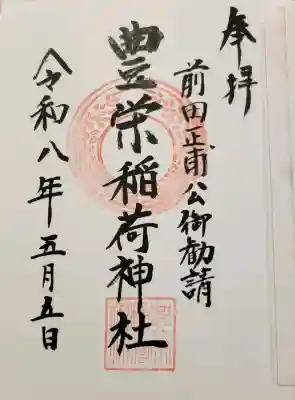 奉拝
前田正甫公御勧請
豊栄稲荷神社
令和八年五月五日